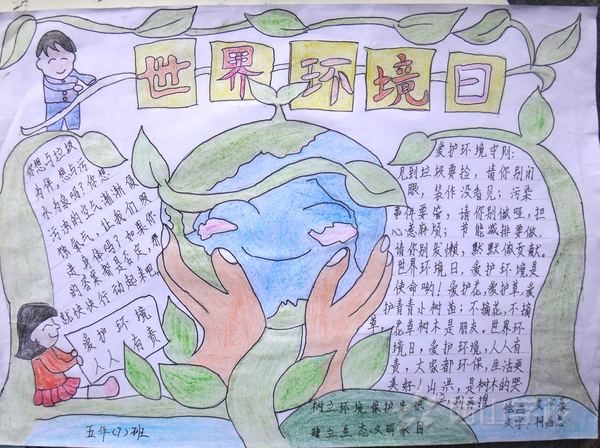 世界环境日
你想与垃圾
为伴，想与污
水为美吗？你想
污浊的空气渐渐侵
身体吗？如果你
的答案都是否定，那
赶快快行动起来吧
爱护环境
人人有责
五年(7)班
爱护环境守则：
见到垃圾要捡，请你别闭
眼，装作没看见；污染
事件要管，请你别做哑，担
心惹麻烦；节能减排要做，
请你别发懒，默默做贡献。
世界环境日，爱护环境是
使命哟！爱护花，爱护草，爱
护青青小树苗；不摘花，不摘
草，花草树木是朋友。世界环
境日，爱护环境，人人有
责，大家都环保，生活更
美好！山洪，是树木的哭
树立环境保护意识
建立生态文明家园
绘画：
文字：